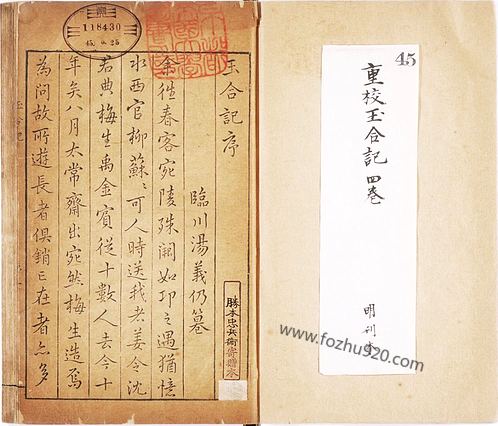 45
重校玉合記 四巻
明刊本
玉合記序
臨川湯義仍篹
余徃春客宛陵殊闕如邛之遇猶憶
水西官柳蘇〻可人時送我者姜令沈
君典梅生禹金賓從十數人去今十
年矣八月太常齋出宛然梅生造焉
為問故所遊長者俱銷亡在者亦多
玉合記
118430
勝本忠兵衛寄贈本
www.fozhu920.com